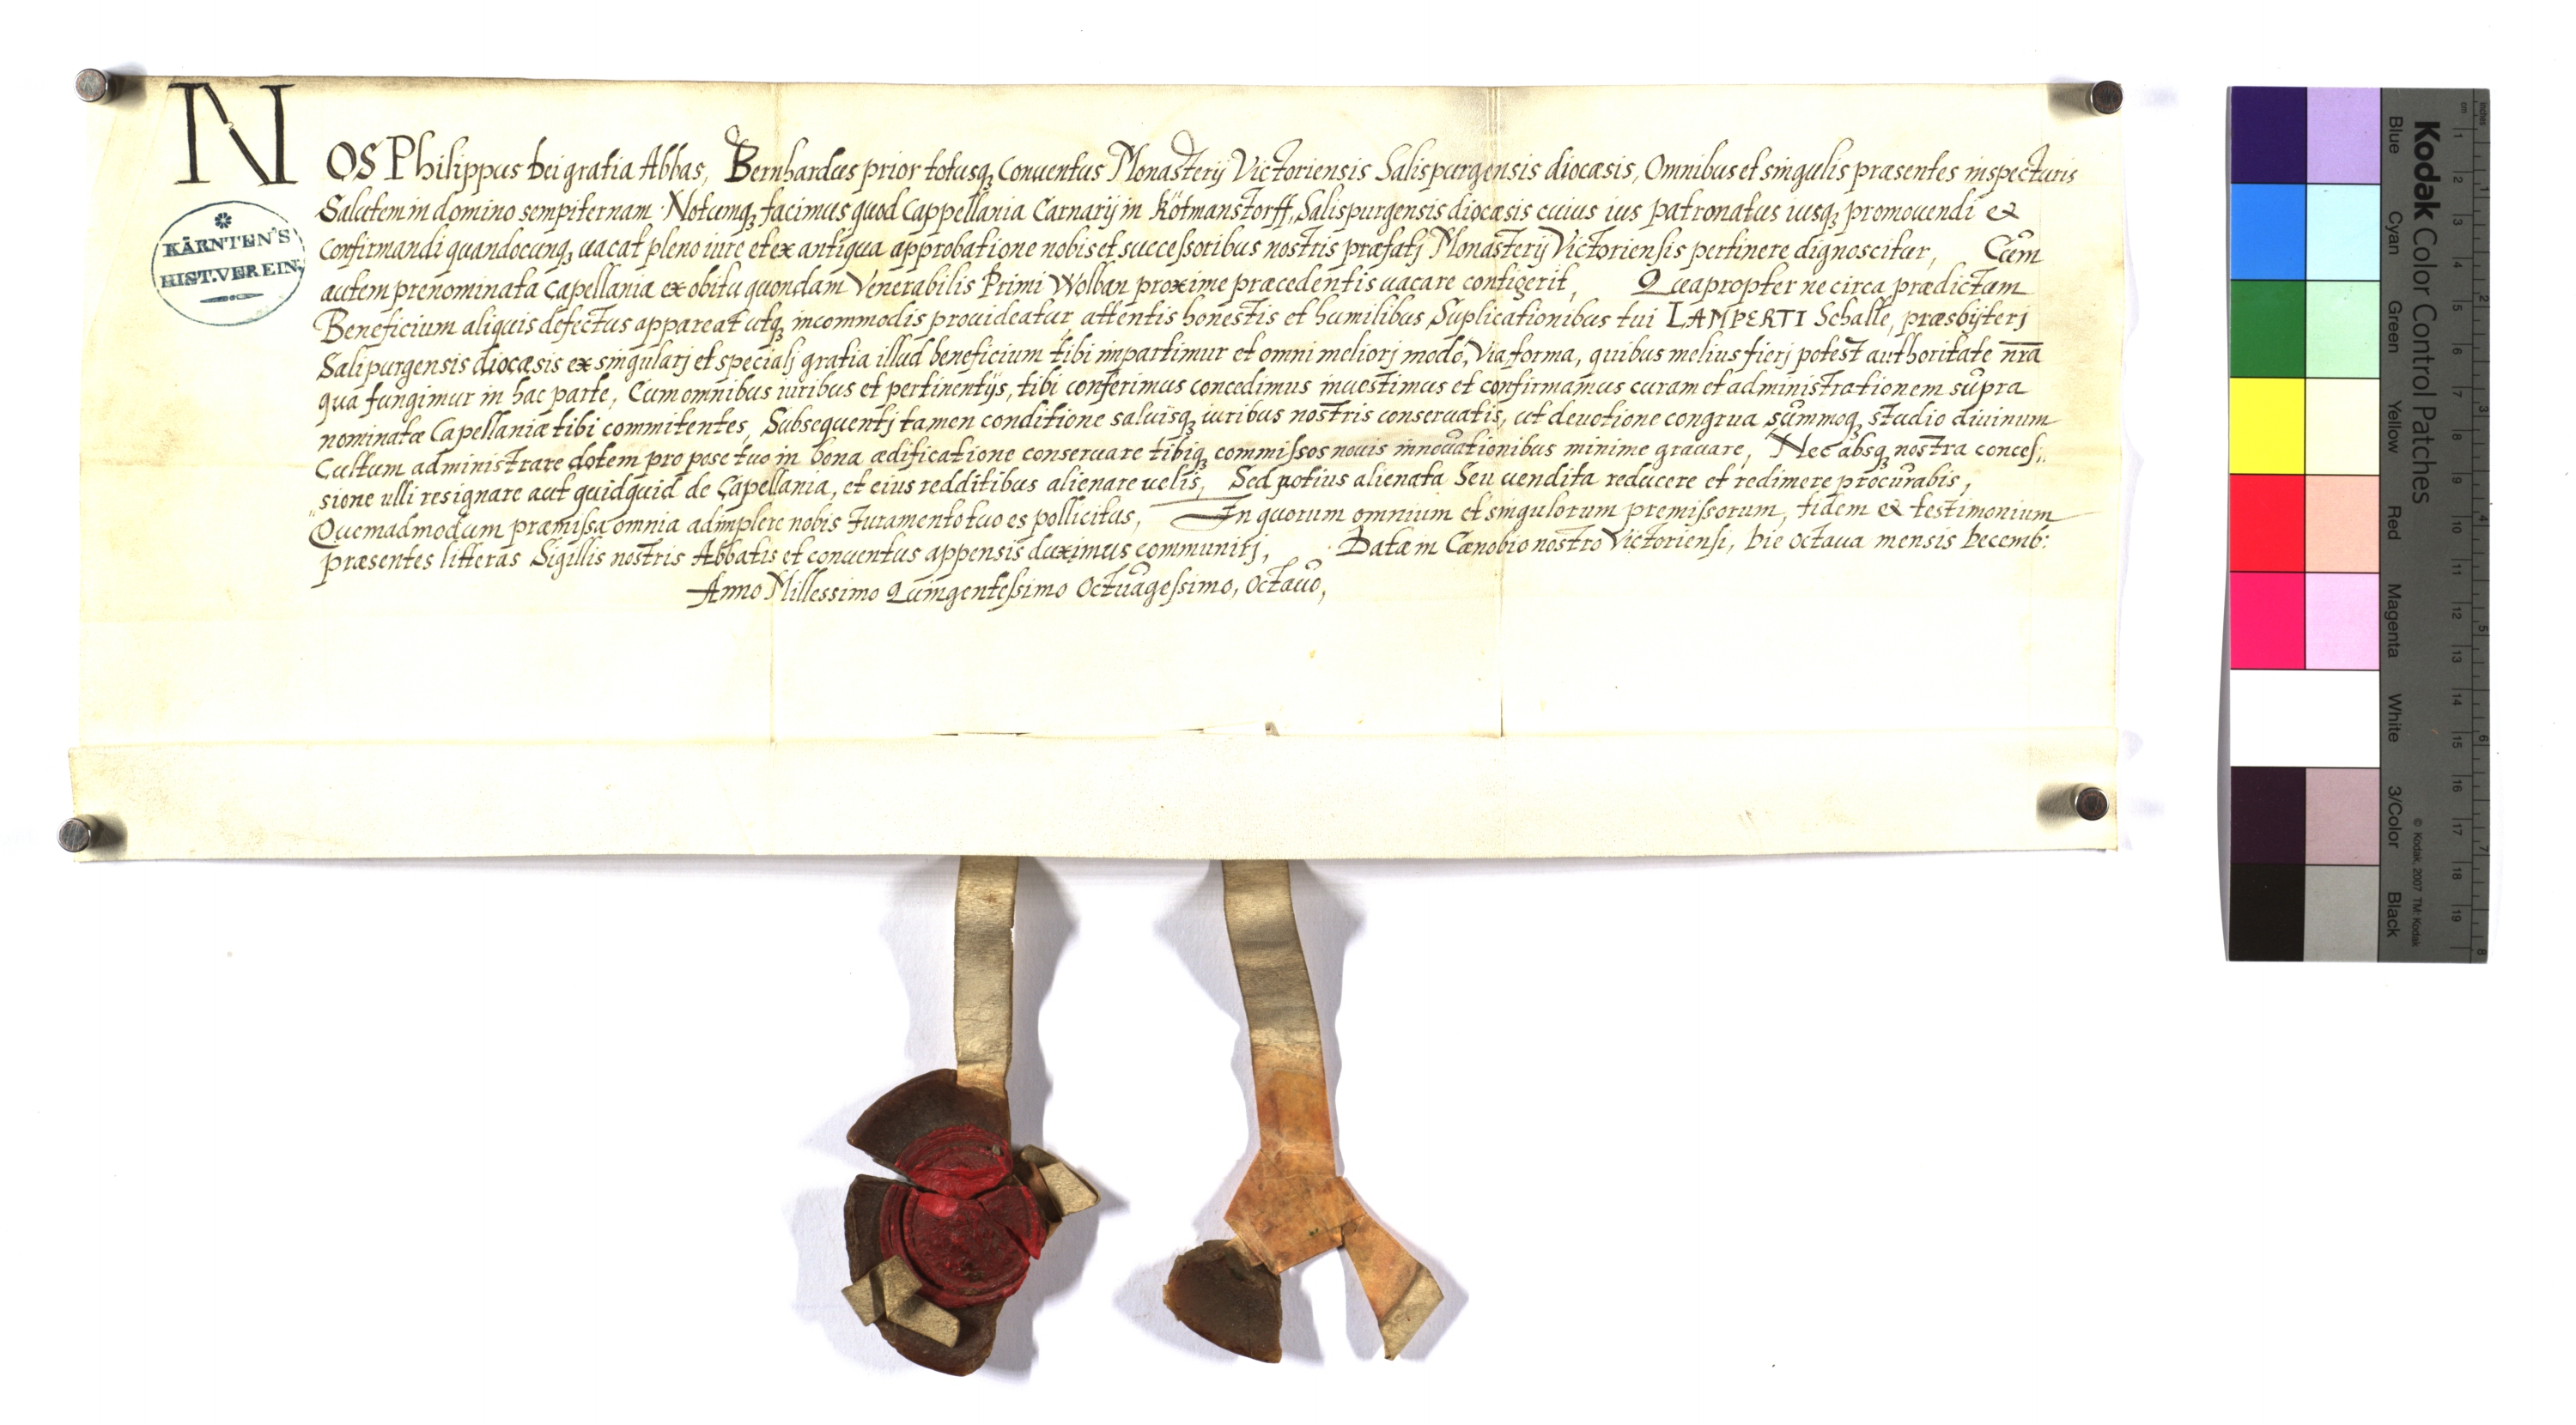 NOS Philippus Dei gratia Abbas, Bernhardus prior totusq₃ Conuentus Monasterij Victoriensis Salispurgensis diocæsis, Omnibus et singulis præsentes inspecturis
Salutem in domino sempiternam. Notumq₃ facimus quod Cappellania Carnarij in Kötmanstorff, Salispurgensis diocæsis cuius ius patronatus iusq₃ promouendi et
Confirmandi quandocunq₃ uacat pleno iure et ex antiqua approbatione nobis et succeſsoribus nostris præfatj Monasterij Victoriensis pertinere dignoscitur, Cum
autem prenominata Capellania ex obitu quondam Venerabilis Primi Wolban proxime præcedentis uacare contigerit, Quapropter ne circa prædictum
Beneficium aliquis defectus appareat utq₃ incommodis prouideatur, attentis honestis et humilibus Suplicationibus tui LAMPERTI Schalle, præsbijterj
Salipurgensis diocæsis ex singularj et specialj gratia illud beneficium tibi inpartimur et omni meliorj modo, Via, forma, quibus melius fierj potest authoritate nr̄a
qua fungimur in hac parte, Cum omnibus iuribus et pertinentijs, tibi conferimus concedimus inuestimus et confirmamus curam et administrationem supra
nominatæ Capellaniæ tibi commitentes, Subsequentj tamen conditione saluisq₃ iuribus nostris conseruatis, ut deuotione congrua summoq₃ studio diuinum
Cultum administrare dotem pro pose tuo in bona ædificatione conseruare tibiq₃ commiſsos nouis innouationibus minime grauare, Nec absq₃ nostra conceſ,,
sione ulli resignare aut quidquid de Capellania, et eius redditibus alienare uelis, Sed potius alienata Seu uendita reducere et redimere procurabis,
Quemadmodum præmiſsa omnia adimplere nobis Iuramento tuo es pollicitus, In quorum omnium et singulorum premiſsorum, fidem et testimonium
præsentes litteras Sigillis nostris Abbatis et conuentus appensis duximus communirj, Datæ in Cænobio nostro Victoriensi, Die octaua mensis Decemb:
Anno Millessimo Quingenteſsimo Octuageſsimo, Octauo,
KÄRNTEN'S
HIST. VEREIN,
Kodak Color Control Patches
Blue Cyan Green Yellow Red Magenta White 3/Color Black
© Kodak, 2007 TM: Kodak
cm 1 2 3 4 5 6 7 8 9 10 11 12 13 14 15 16 17 18 19
inches 1 2 3 4 5 6 7 8